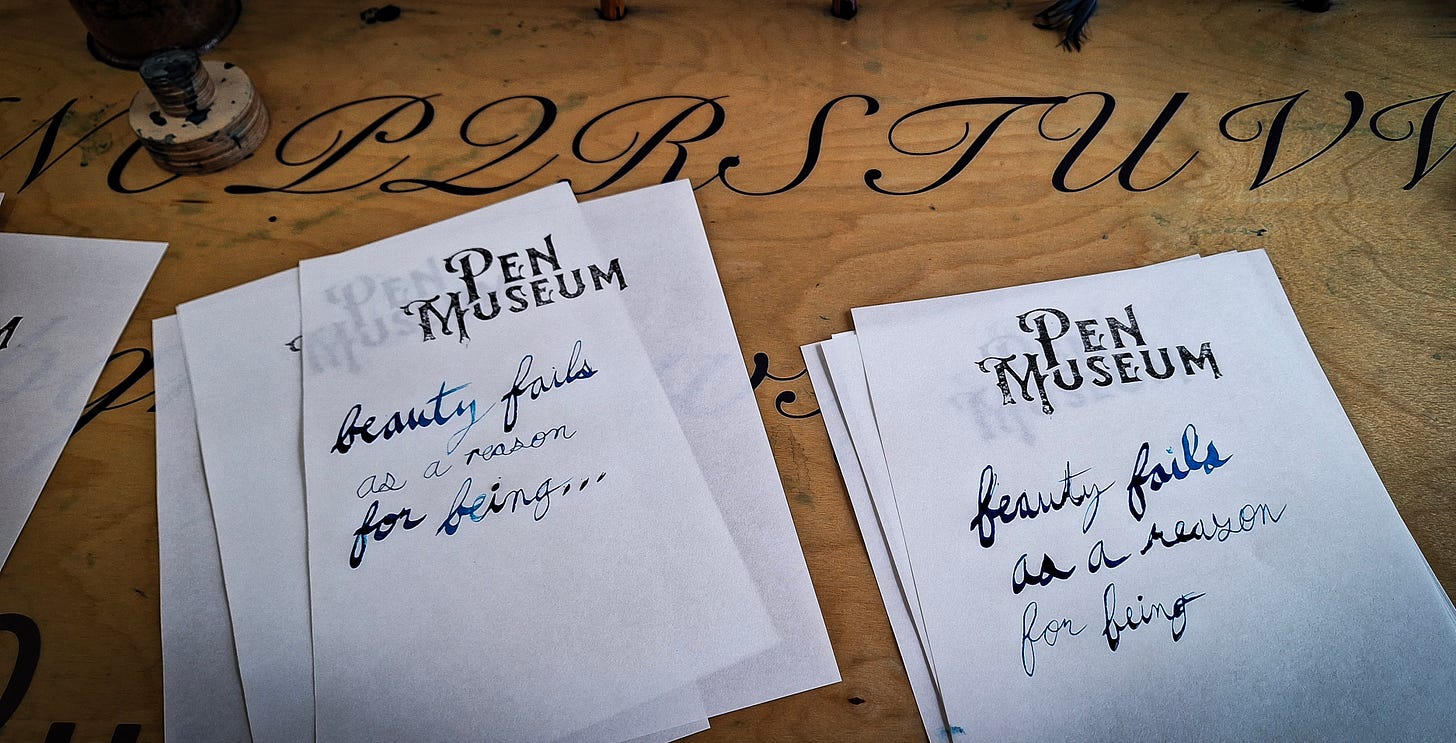 N O P Q R S T U V W
PEN
MUSEUM
beauty fails
as a reason
for being...
PEN
MUSEUM
beauty fails
as a reason
for being